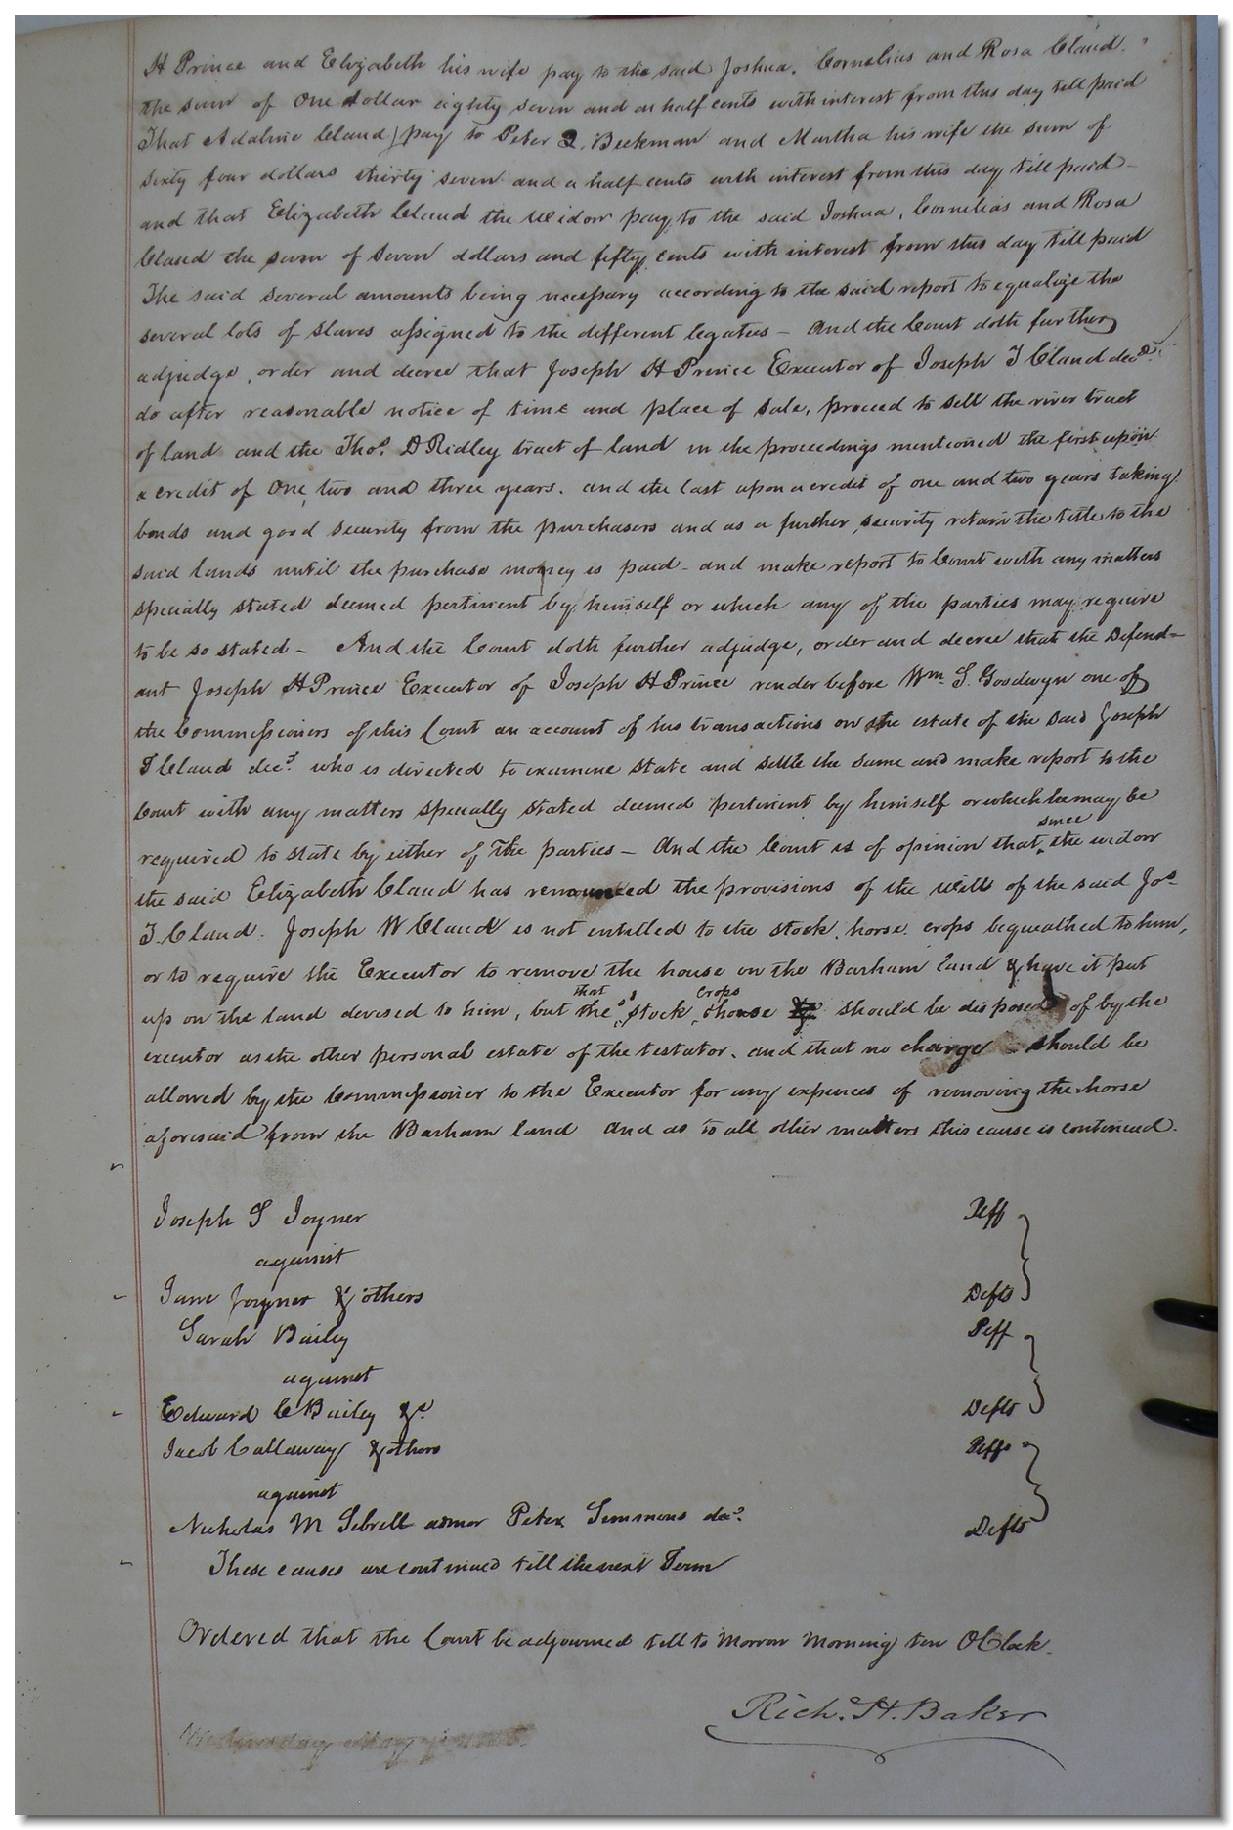 H Prince and Elizabeth his wife pay to the said Joshua, Cornelias and Rosa Claud.
the sum of One dollar eighty seven and an half cents with interest from this day till paid
That Adaline Claud pay to Peter J. Beekman and Martha his wife the sum of
sixty four dollars thirty seven and a half cents with interest from this day till paid –
and that Elizabeth Claud the widow pay to the said Joshua, Cornelias and Rosa
Claud the sum of Seven dollars and fifty cents with interest from this day till paid
The said several amounts being necessary according to the said report to equalize the
several lots of slaves assigned to the different legatees – And the Court doth further
adjudge, order and decree that Joseph H Prince Executor of Joseph T Claud decd.
do after reasonable notice of time and place of sale, proceed to sell the river tract
of land and the Thos. D Ridley tract of land in the proceedings mentioned the first upon
a credit of One, two and three years. and the last upon a credit of one and two years taking
bonds and good security from the purchasers and as a further security retain the title to the
said lands until the purchase money is paid – and make report to Court with any matters
specially stated deemed pertinent by himself or which any of the parties may require
to be so stated – And the Court doth further adjudge, order and decree that the Defend=
ant Joseph H Prince Executor of Joseph H Prince render before Wm. S. Goodwyn one of
the Commissioners of this Court an account of his transactions on the estate of the said Joseph
T Claud decd. who is directed to examine state and settle the same and make report to the
Court with any matters specially stated deemed pertinent by himself or which he may be
required to state by either of the parties – And the Court is of opinion that since the widow
the said Elizabeth Claud has renounced the provisions of the will of the said Jos.
T. Claud. Joseph W Claud is not entitled to the stock, horse, crops bequeathed to him,
or to require the Executor to remove the house on the Barham land & have it put
up on the land devised to him, but that the sd. stock, crops, house &c should be disposed of by the
executor as the other personal estate of the testator, and that no charge – should be
allowed by the Commissioner to the Executor for any expences of removing the horse
aforesaid from the Barham land And as to all other matters this cause is continued.
Joseph S Joyner Plff
against
Jane Joyner & others Defts
Sarah Bailey Plff
against
Edward C Bailey &c. Defts
Jacob Callaway & others Plffs
against
Nicholas M Sebrell admor Peter Simmons decd. Defts
These causes are continued till the next Term
Ordered that the Court be adjourned till to Morrow Morning ten OClock.
Rich. H. Baker